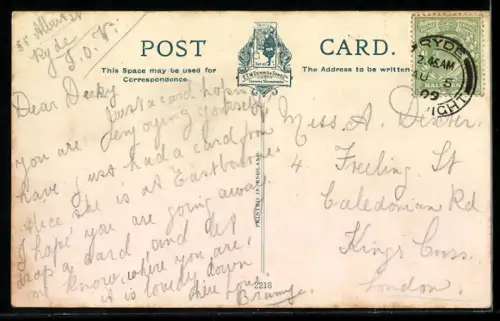 55 Albert St
Ryde
I.O.W.
POST CARD.
This Space may be used for
Correspondence.
The Address to be written
Dear Decky
Just a card hoping
you are enjoying yourself
have just had a card from
Alice she is at Eastbourne.
I hope you are going away.
drop a card and let
me know where you are,
it is lovely down
here love
PRINTED IN ENGLAND
2218
RYDE
2.45AM
AU 5
09
WIGHT
HALF
Miss A. Dexter.
4 Freeling St
Caledonian Rd
Kings Cross.
London.